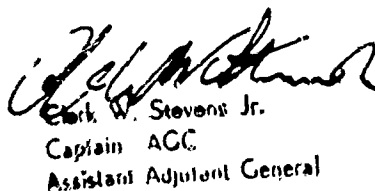 Clark W. Stevens Jr.
Captain AGC
Assistant Adjutant General